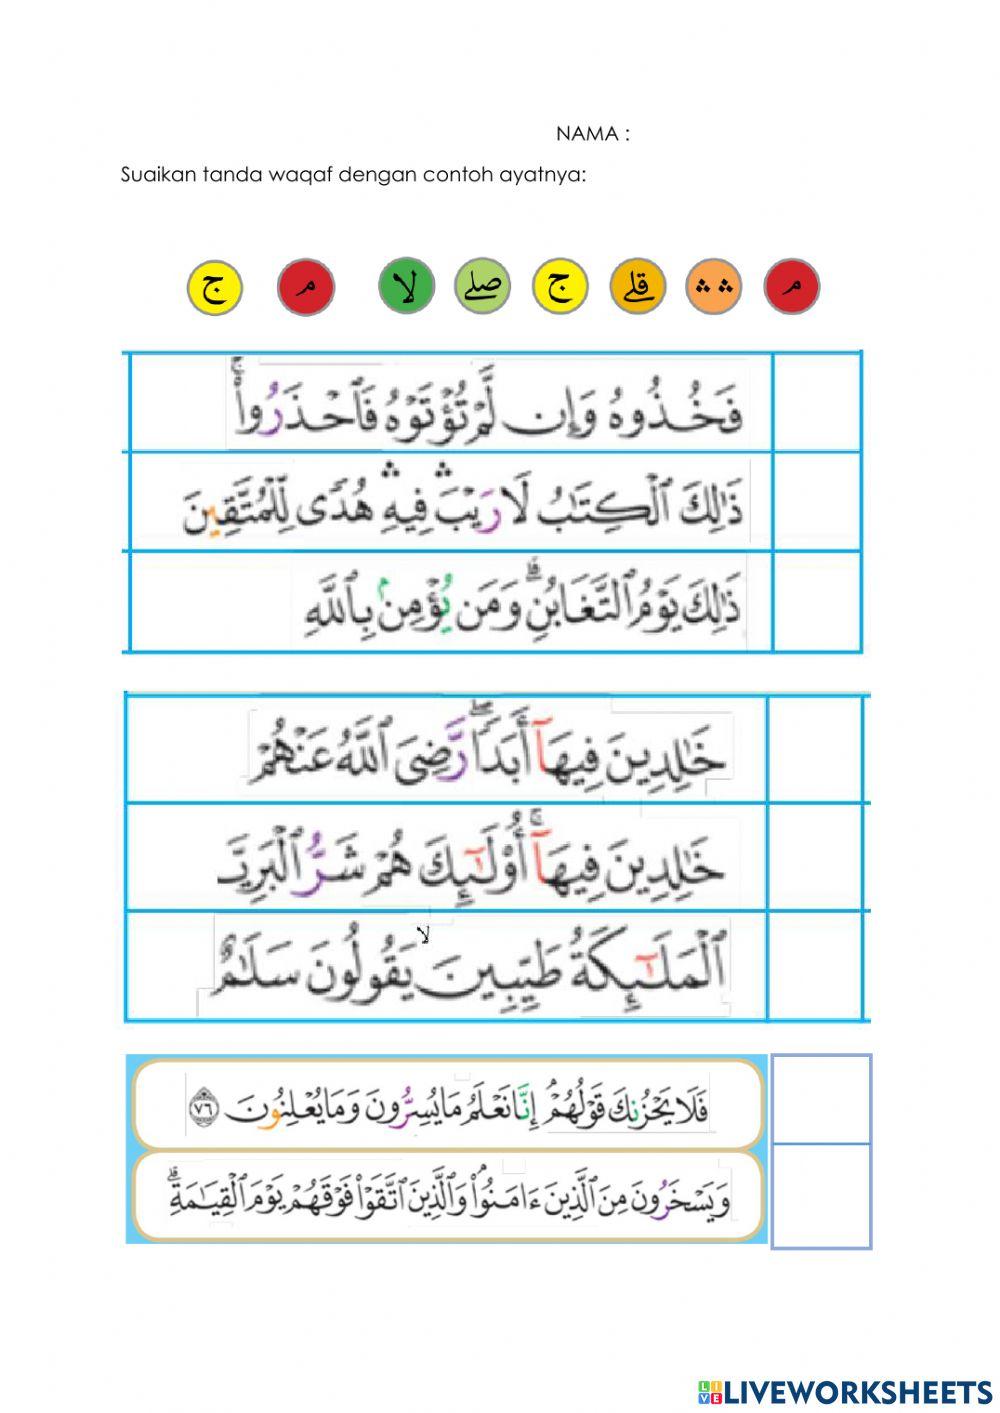 NAMA :
Suaikan tanda waqaf dengan contoh ayatnya:
ج م لا صلے ج قلے ∴ ∴ م
فَخُذُوهُ وَإِن لَّمْ تُؤْتَوْهُ فَٱحْذَرُوا۟ۚ
ذَٰلِكَ ٱلْكِتَـٰبُ لَا رَيْبَ ۛ فِيهِ ۛ هُدًى لِّلْمُتَّقِينَ
ذَٰلِكَ يَوْمُ ٱلتَّغَابُنِ ۗ وَمَن يُؤْمِنۢ بِٱللَّهِ
خَـٰلِدِينَ فِيهَآ أَبَدًا ۖ رَّضِىَ ٱللَّهُ عَنْهُمْ
خَـٰلِدِينَ فِيهَآ ۚ أُو۟لَـٰٓئِكَ هُمْ شَرُّ ٱلْبَرِيَّـ
ٱلْمَلَـٰٓئِكَةُ طَيِّبِينَ ۙ يَقُولُونَ سَلَـٰمٌ
فَلَا يَحْزُنكَ قَوْلُهُمْ ۘ إِنَّا نَعْلَمُ مَا يُسِرُّونَ وَمَا يُعْلِنُونَ ٧٦
وَيَسْخَرُونَ مِنَ ٱلَّذِينَ ءَامَنُوا۟ ۘ وَٱلَّذِينَ ٱتَّقَوْا۟ فَوْقَهُمْ يَوْمَ ٱلْقِيَـٰمَةِ ۗ
LIVEWORKSHEETS